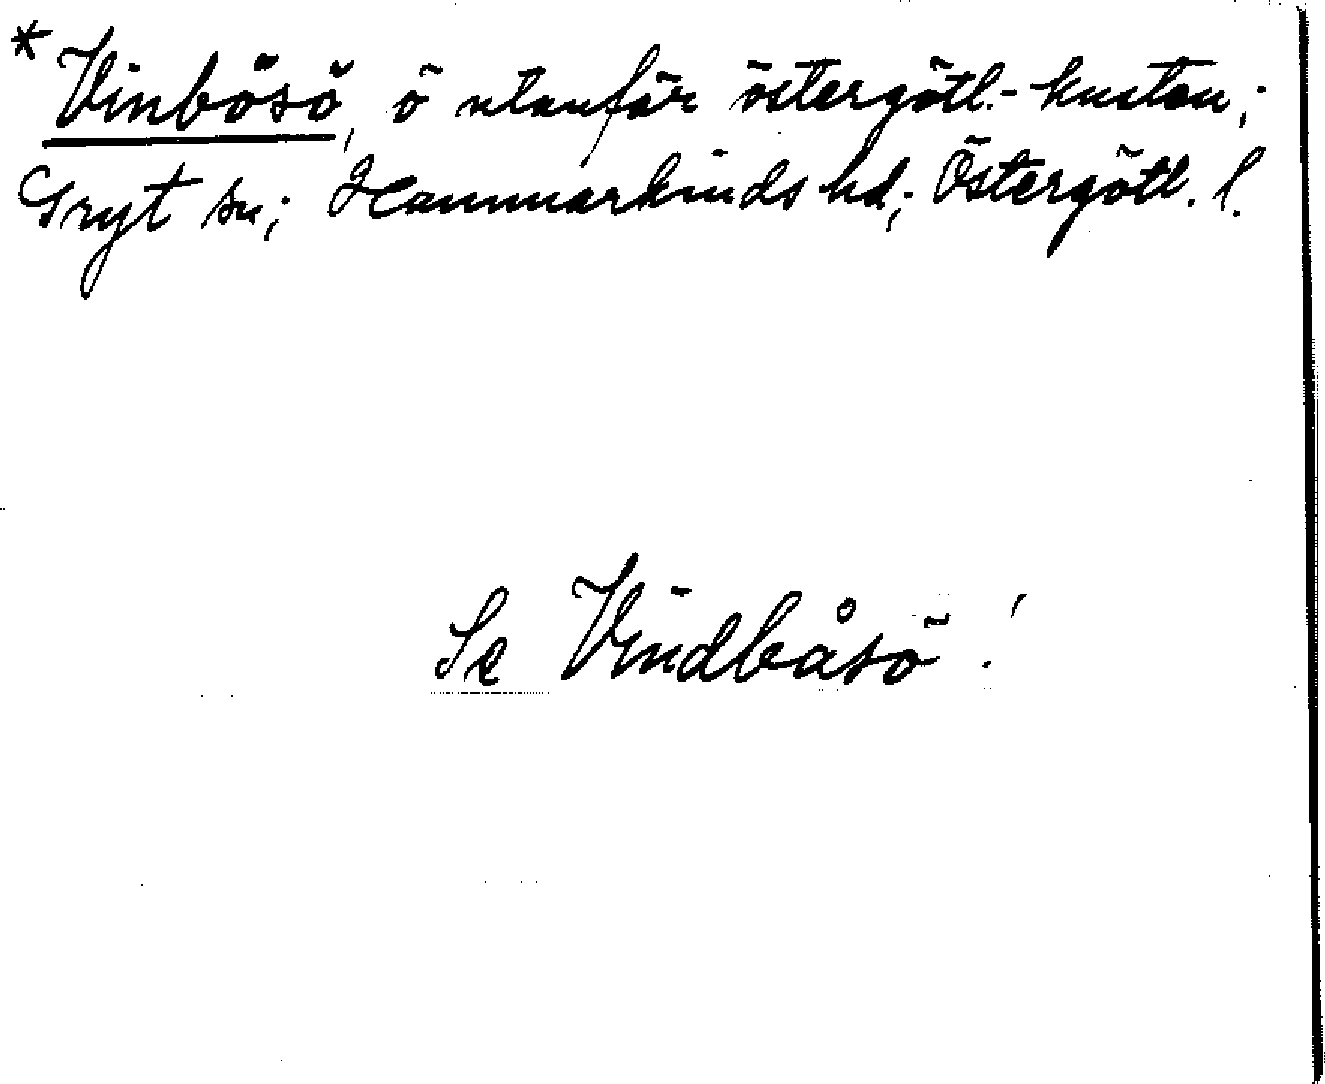 * Vinbösö, ö utanför östergötl.-kusten;
Gryt sn; Hammarkinds hd; Östergötl. l.
Se Vindbåsö!